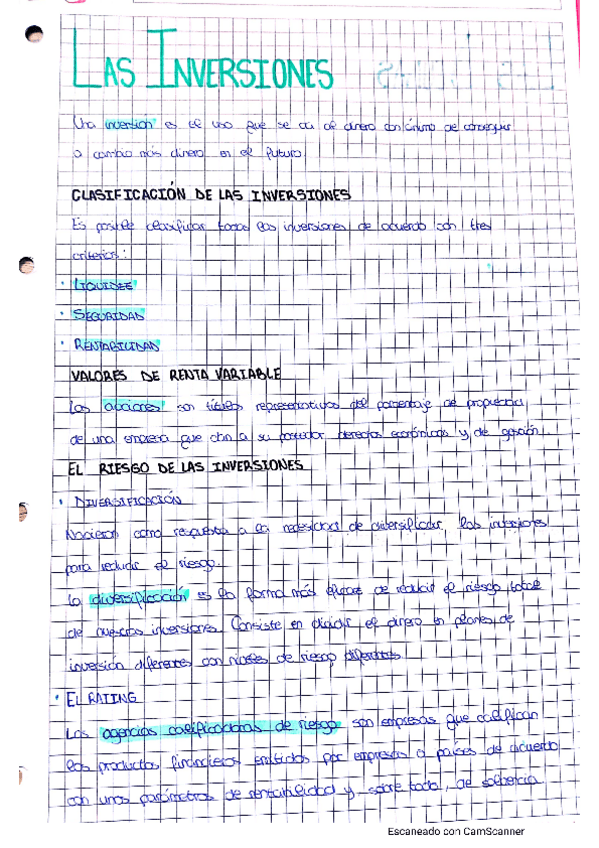 LAS INVERSIONES
Una inversión es el uso que se da al dinero con ánimo de conseguir
a cambio más dinero en el futuro.
CLASIFICACIÓN DE LAS INVERSIONES
Es posible clasificar todas las inversiones de acuerdo con tres
criterios:
· LIQUIDEZ
· SEGURIDAD
· RENTABILIDAD
VALORES DE RENTA VARIABLE
Las acciones son títulos representativos del porcentaje de propiedad
de una empresa que dan a su poseedor derechos económicos y de gestión.
EL RIESGO DE LAS INVERSIONES
· DIVERSIFICACIÓN
Nacieron como respuesta a la necesidad de diversificar las inversiones
para reducir el riesgo.
La diversificación es la forma más eficaz de reducir el riesgo total
de nuestras inversiones. Consiste en dividir el dinero en planes de
inversión diferentes con niveles de riesgo diferentes.
· EL RATING
Las agencias calificadoras de riesgo son empresas que califican
los productos financieros emitidos por empresas o países de acuerdo
con unos parámetros de rentabilidad y, sobre todo, de solvencia.
Escaneado con CamScanner